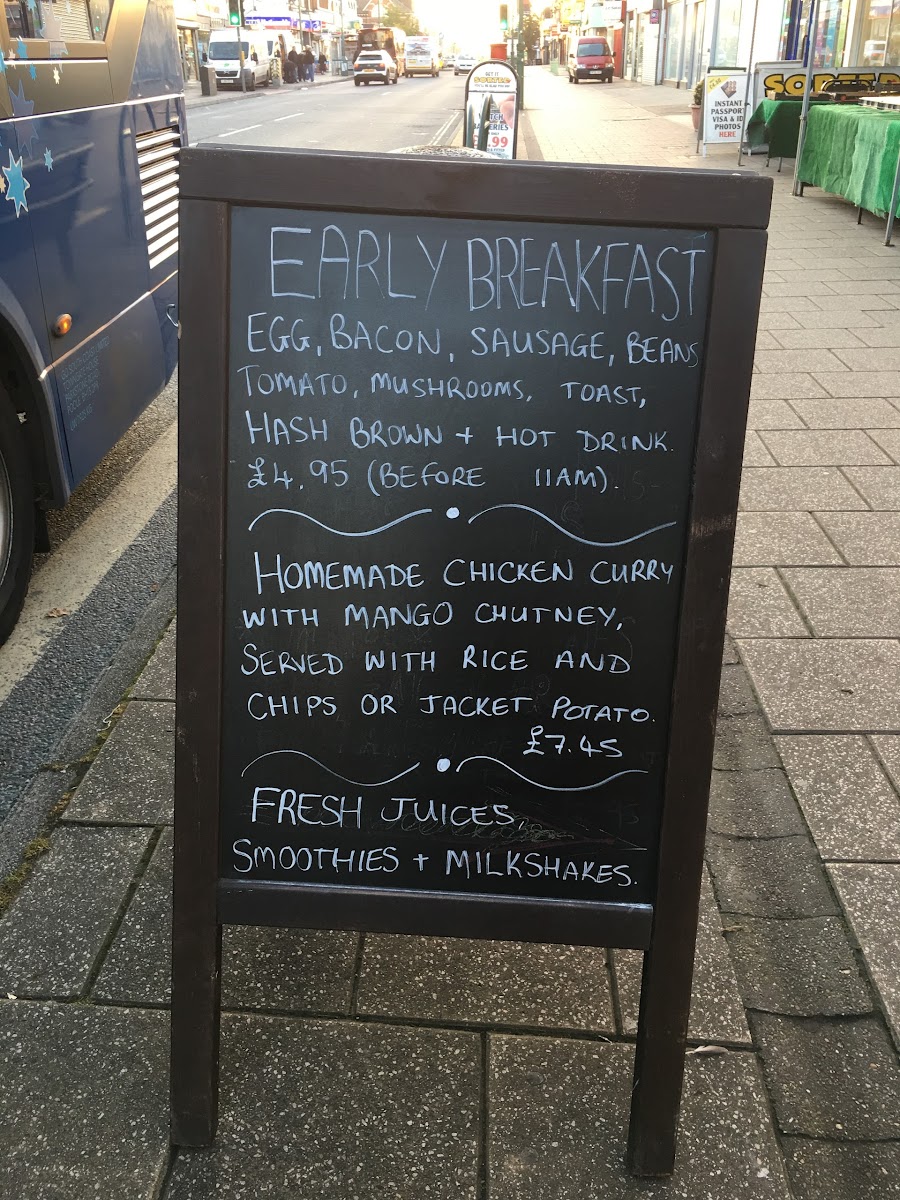 EARLY BREAKFAST
EGG, BACON, SAUSAGE, BEANS
TOMATO, MUSHROOMS, TOAST,
HASH BROWN + HOT DRINK.
£4.95 (BEFORE 11AM).
HOMEMADE CHICKEN CURRY
WITH MANGO CHUTNEY,
SERVED WITH RICE AND
CHIPS OR JACKET POTATO.
£7.45
FRESH JUICES,
SMOOTHIES + MILKSHAKES.
GET IT
SORTED
.99
INSTANT
PASSPORT
VISA & ID
PHOTOS
HERE
SORTED